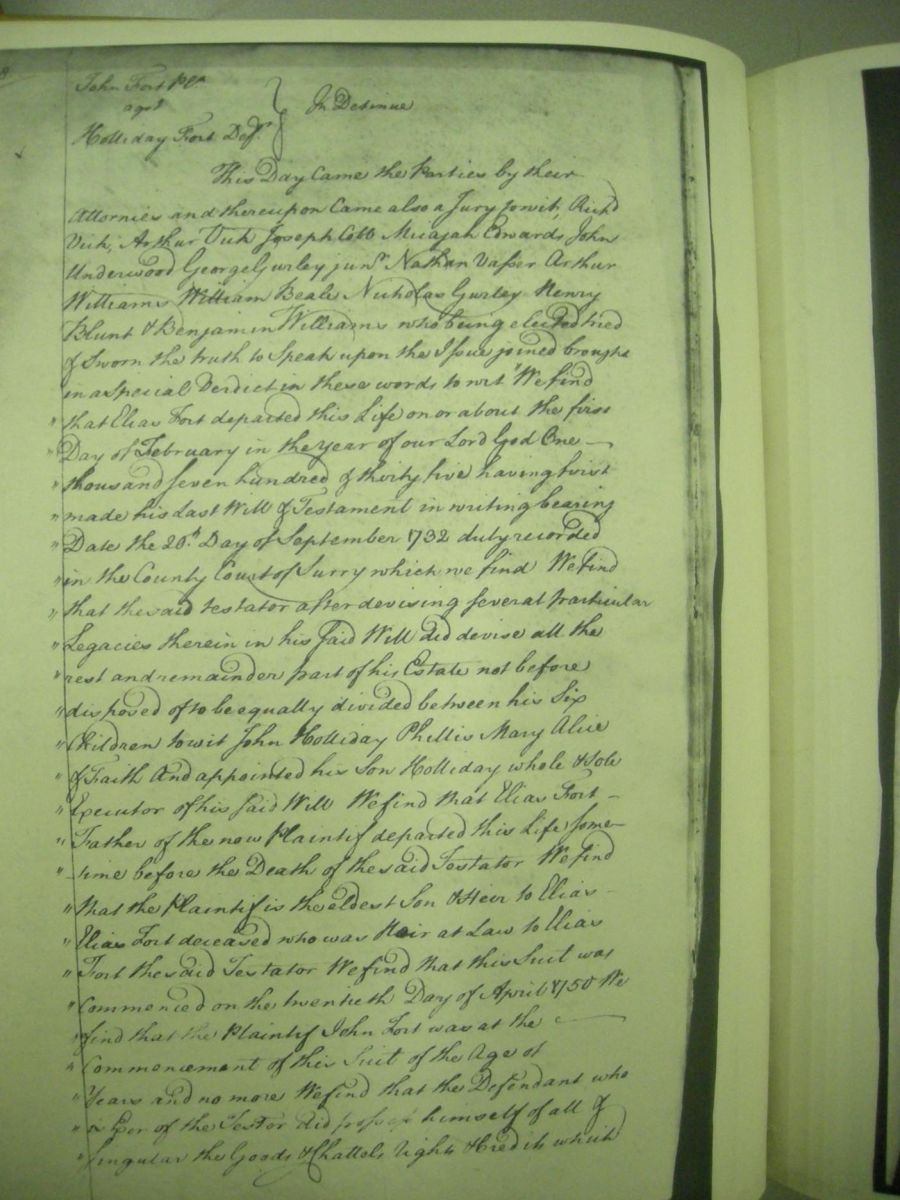 8
John Fort Pl.
agst
Holliday Fort Deft.
In Detinue
This Day Came the Parties by their
Attornies and thereupon Came also a Jury to wit, Richd
Vick, Arthur Vick Joseph Cobb Micajah Edwards John
Underwood George Gurley junr. Nathan Vasser Arthur
Williams William Beale Nicholas Gurley Henry
Blunt & Benjamin Williams who being elected tried
& Sworn the truth to Speak upon the Issue joined brought
in a Special Verdict in these words to wit "We find
" that Elias Fort departed this Life on or about the first
" Day of February in the year of our Lord God One
" thousand seven hundred & thirty five having first
" made his Last Will & Testament in writing bearing
" Date the 20th. Day of September 1732 duty recorded
" in the County Court of Surry which we find We find
" that the said testator after devising several particular
" Legacies therein in his said Will did devise all the
" rest and remainder part of his Estate not before
" disposed of to be equally divided between his Six
" Children to wit John Holliday Phillis Mary Alice
" & Faith And appointed his Son Holliday whole & sole
" Executor of his said Will We find that Elias Fort
" Father of the now Plaintif departed this Life some
" time before the Death of the said Testator We find
" that the Plaintif is the eldest Son & Heir to Elias
" Elias Fort deceased who was Heir at Law to Elias
" Fort the said Testator We find that this Suit was
" Commenced on the twentieth Day of April 1750 We
" find that the Plaintif John Fort was at the
" Commencement of this Suit of the Age of
" Years and no more We find that the Defendant who
" is Exor of the Testor did possess himself of all &
" singular the Goods & Chattels rights & Credits which